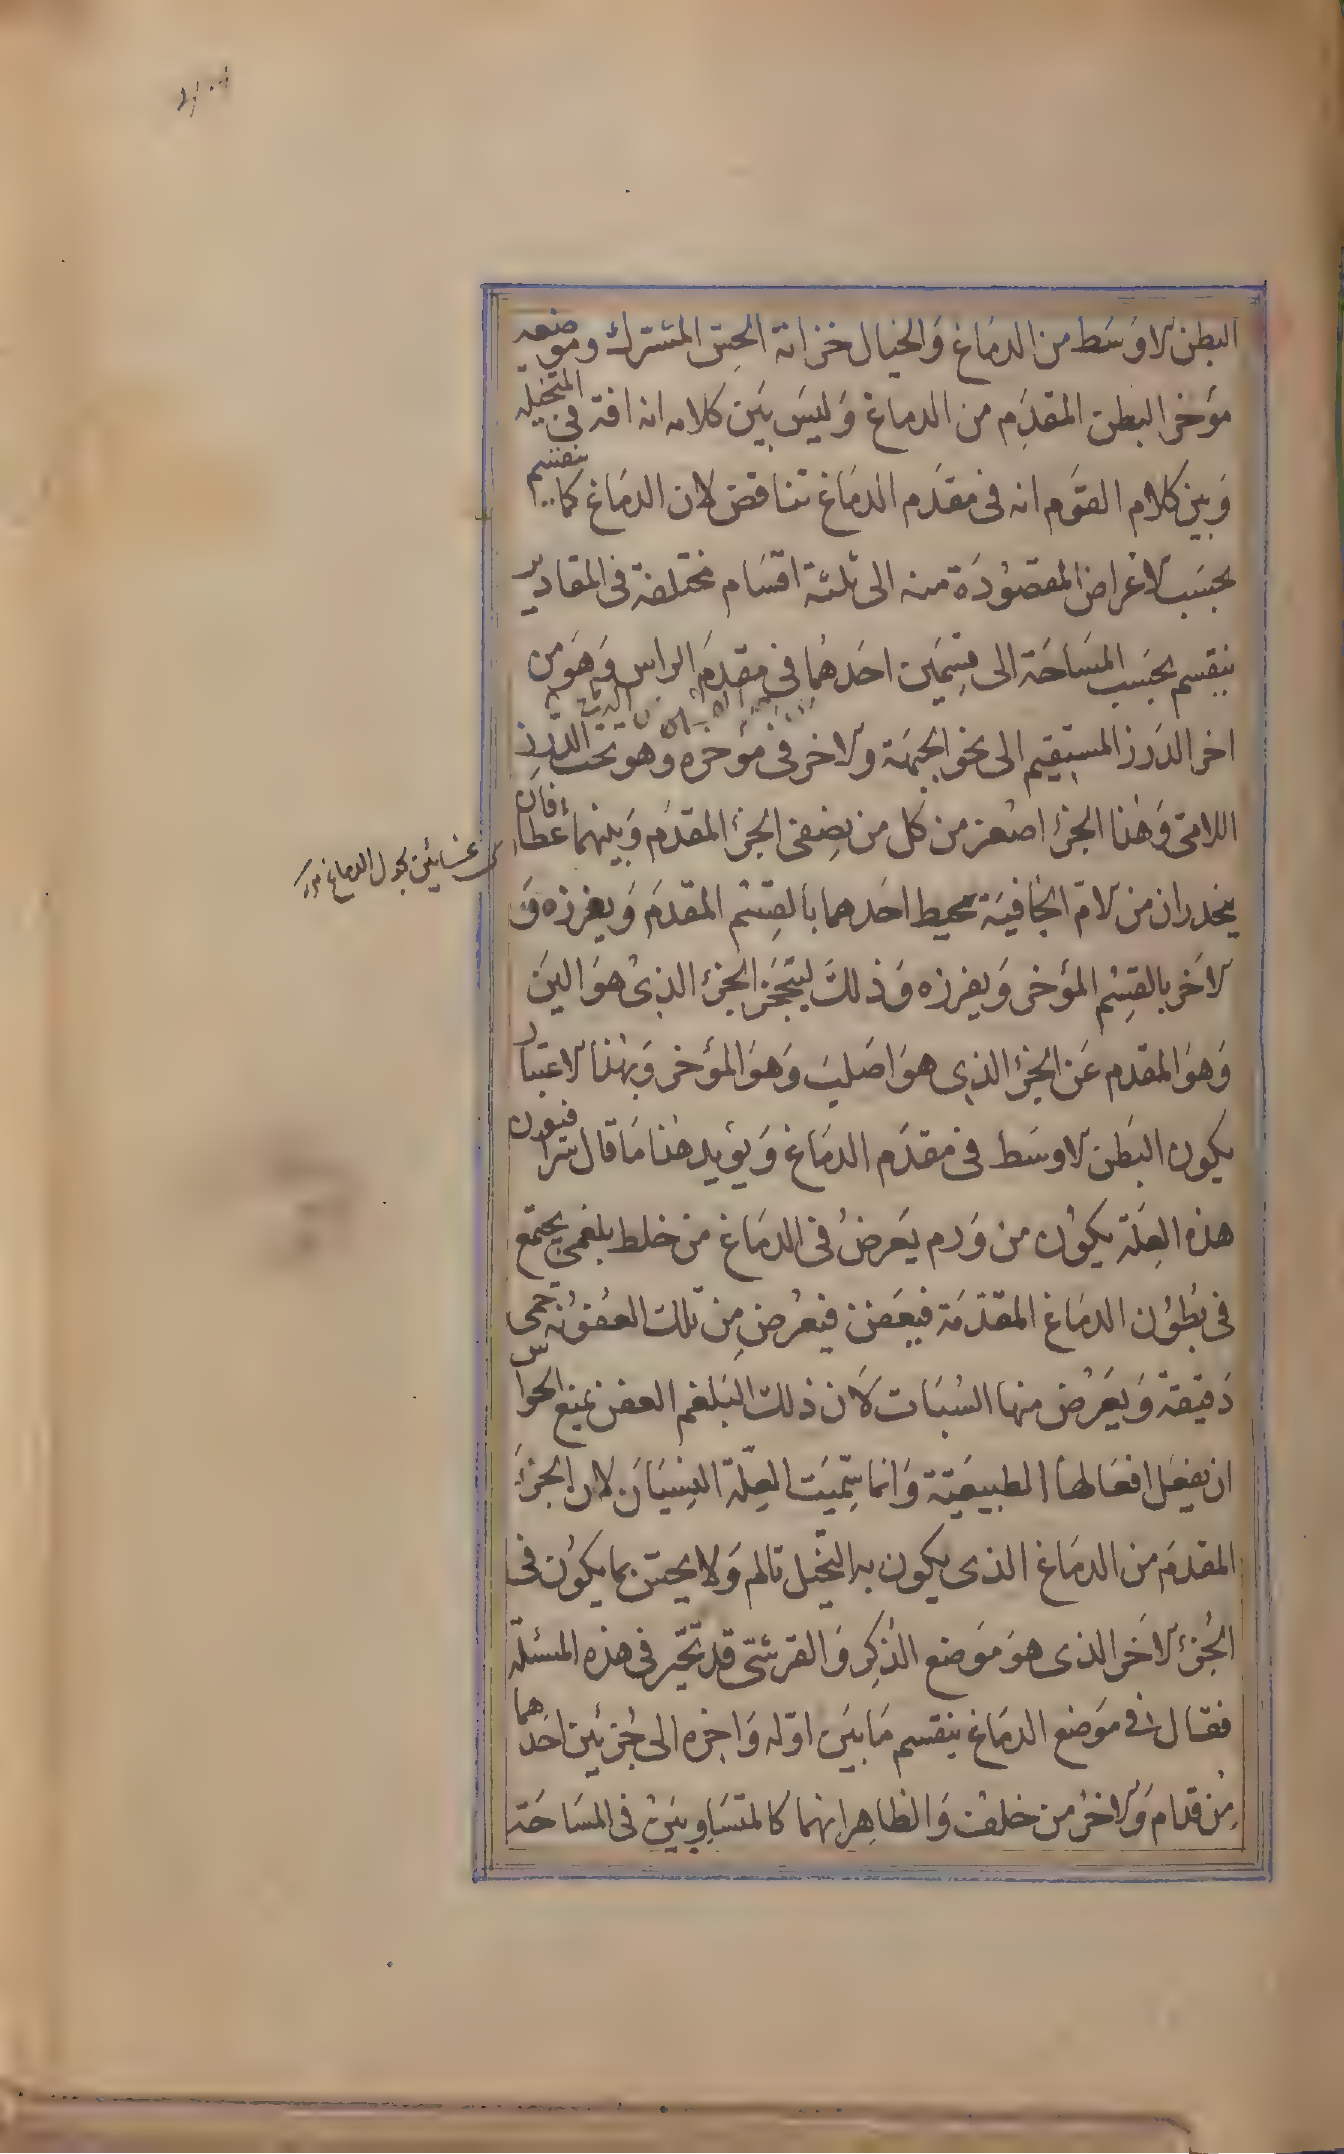 البطن الاوسط من الدماغ والخيال خزانة الحس المشترك وموضعه
مؤخر البطن المقدم من الدماغ وليس بين كلامه انه افة فى المتخيلة
وبين كلام القوم انه فى مقدم الدماغ تناقض لان الدماغ كما ينقسم
بحسب الاغراض المقصودة منه الى ثلثة اقسام مختلفة فى المقادير
ينقسم بحسب المساحة الى قسمين احدهما فى مقدم الراس وهو من
اخر الدرز المستقيم الى نحو الجبهة والاخر فى مؤخره وهو تحت الدرز
اللامى وهذا الجزء اصغر من كل من نصفى الجزء المقدم وبينهما غطاءان
غشائين بحول الدماغ
ينحدران من الام الجافية محيط احدهما بالقسم المقدم ويفرزه و
الاخر بالقسم المؤخر ويفرزه وذلك ليحتجز الجزء الذى هو الين
وهو المقدم عن الجزء الذى هو اصلب وهو المؤخر وبهذا الاعتبار
يكون البطن الاوسط فى مقدم الدماغ ويؤيد هذا ما قال شرافيون
هذه العلة يكون من ورم يعرض فى الدماغ من خلط بلغمى يجتمع
فى بطون الدماغ المقدمة فيعفن فيعرض من تلك العفونة حمى
دقيقة ويعرض منها السبات لان ذلك البلغم العفن يمنع الحواس
ان يفعل افعالها الطبيعية وانما سميت العلة النسيان لان الجزء
المقدم من الدماغ الذى يكون به التخيل تالم ولا يحس بما يكون فى
الجزء الاخر الذى هو موضع الذكر والقرشى قد تحير فى هذه المسئلة
فقال فى موضع الدماغ ينقسم ما بين اوله واخره الى جزئين احدهما
من قدام والاخر من خلف والظاهر انهما كالمتساويين فى المساحة